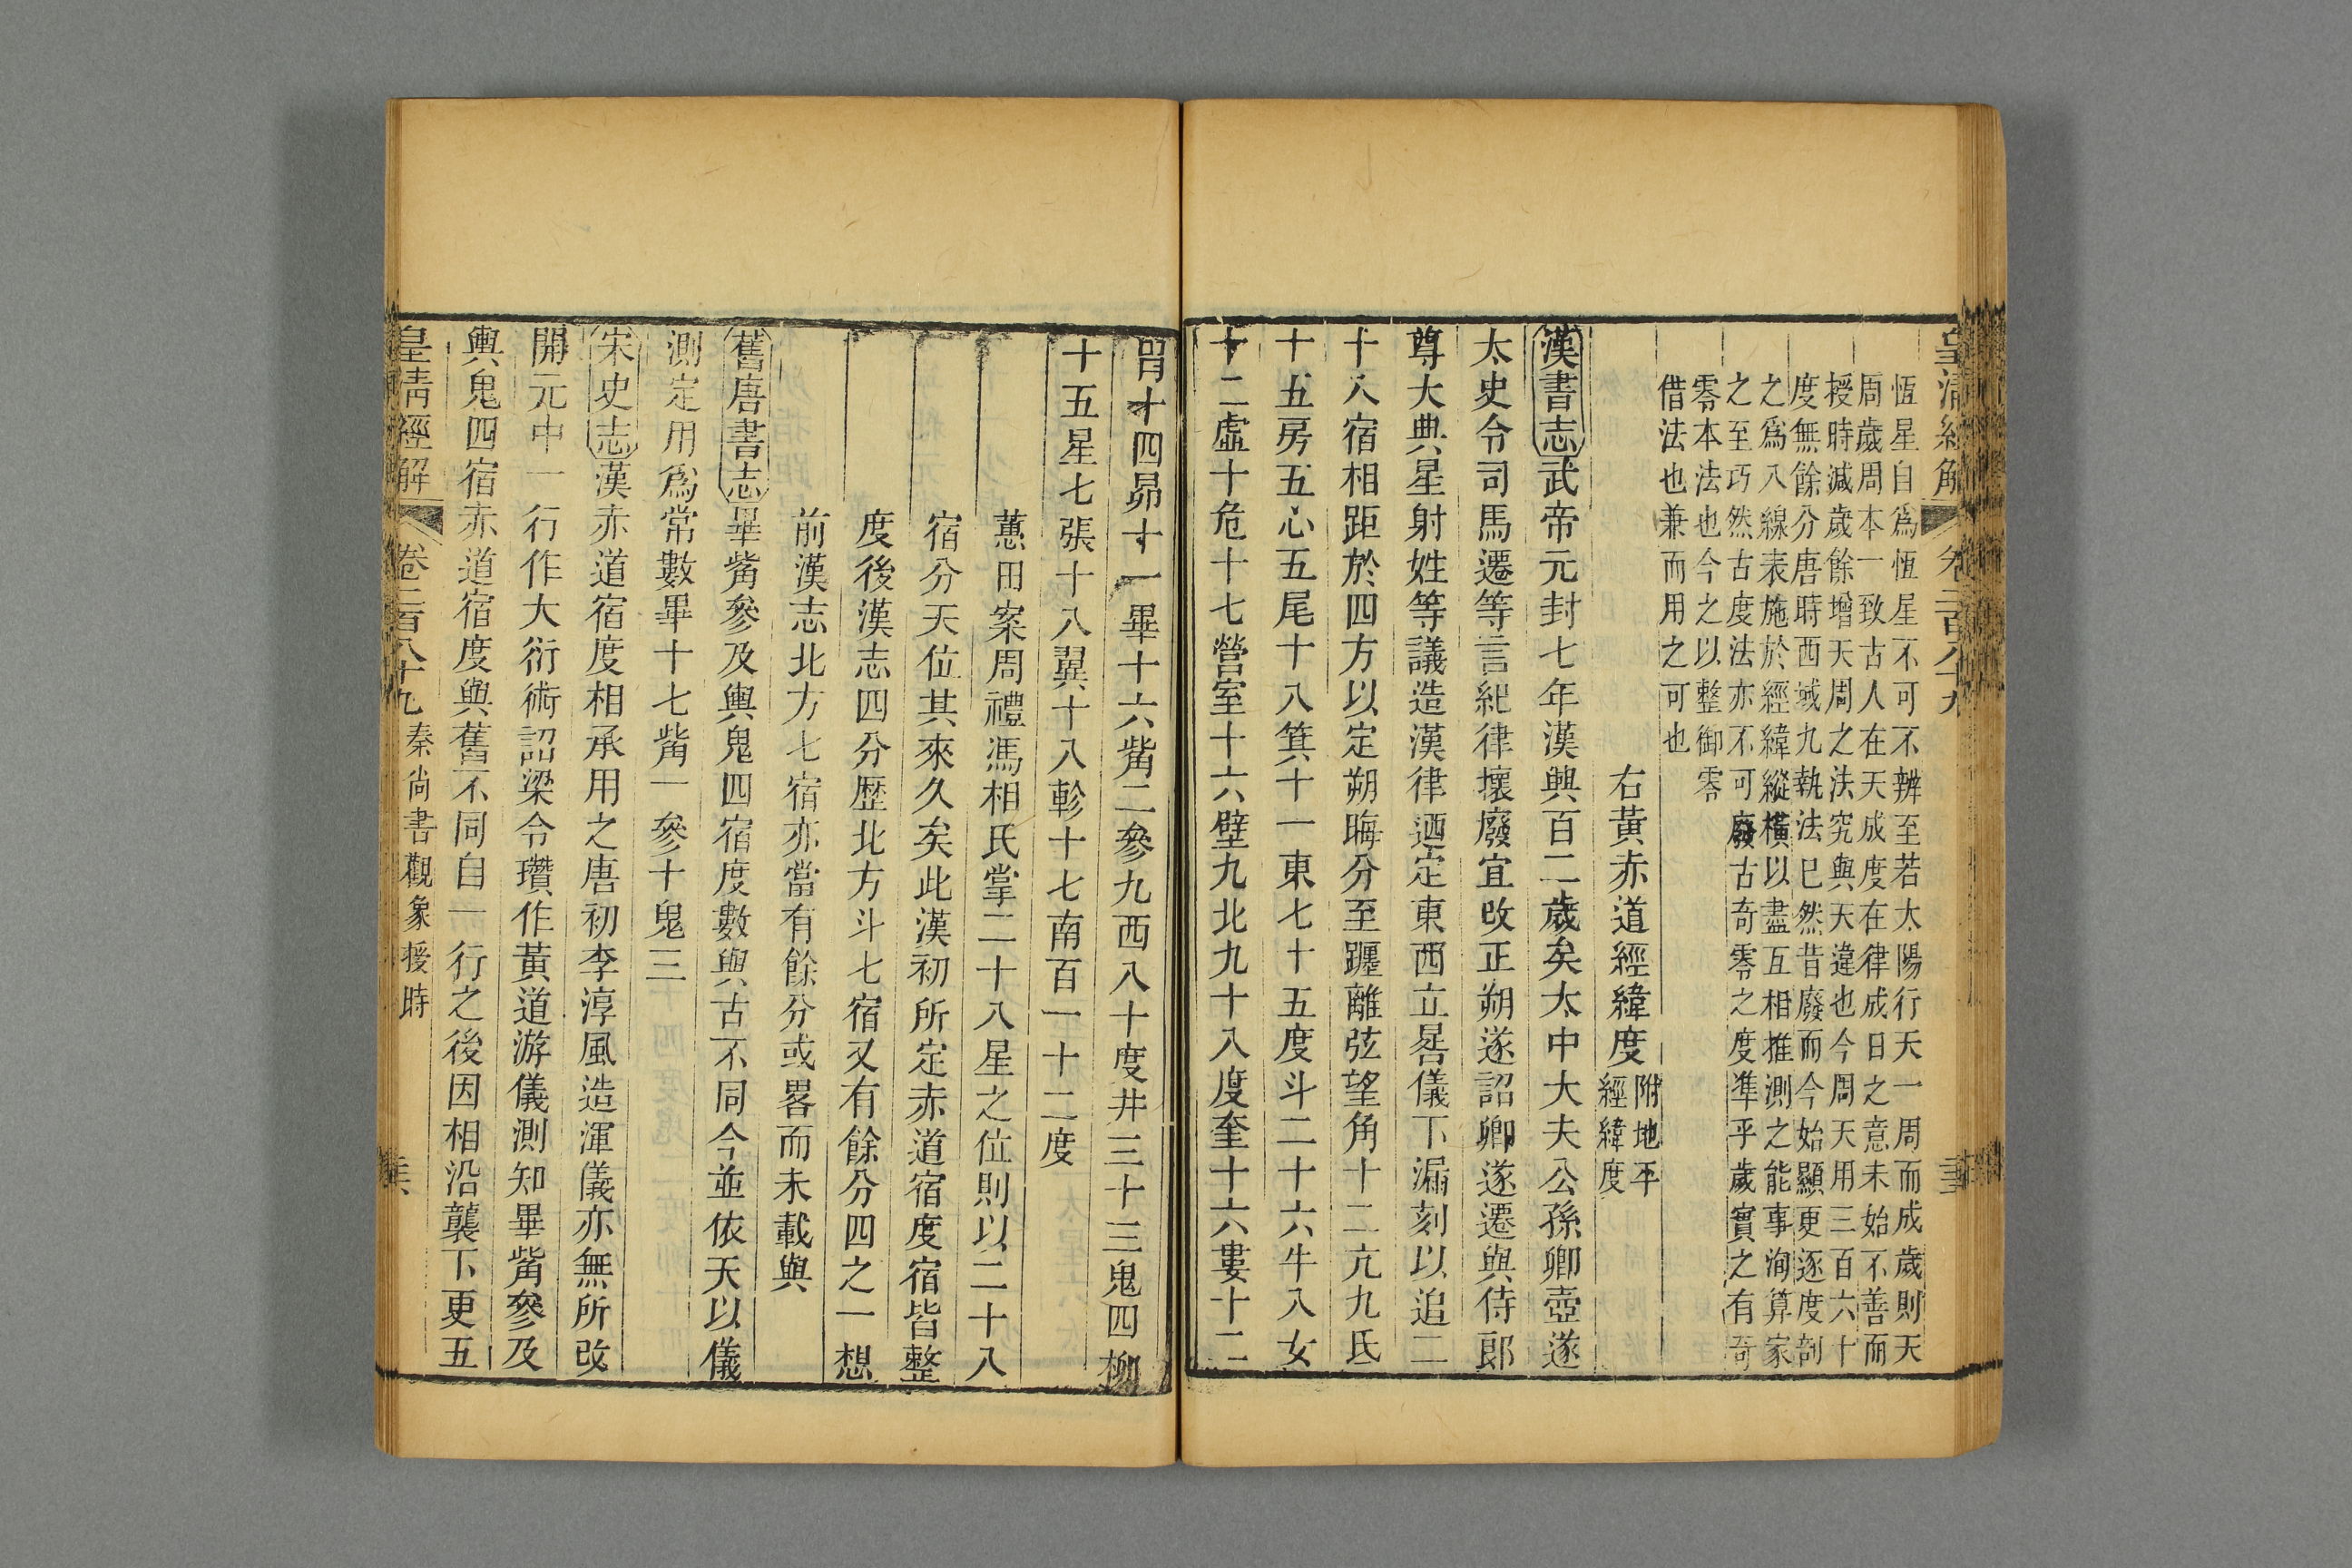 皇清經解 卷二百八十九
恆星自爲恆星不可不辨至若太陽行天一周而成歲則天
周歲周本一致古人在天成度在律成日之意未始不善而
授時減歲餘增天周之法究與天違也今周天用三百六十
度無餘分唐時西域九執法已然昔廢而今始顯更逐度剖
之爲八線表施於經緯縱橫以盡互相推測之能事洵算家
之至巧然古度法亦不可廢古奇零之度準乎歲實之有奇
零本法也今之以整御零
借法也兼而用之可也
右黃赤道經緯度附地平
經緯度
漢書志武帝元封七年漢興百二歲矣太中大夫公孫卿壺遂
太史令司馬遷等言紀律壞廢宜改正朔遂詔卿遂遷與侍郎
尊大典星射姓等議造漢律迺定東西立晷儀下漏刻以追二
十八宿相距於四方以定朔晦分至躔離弦望角十二亢九氐
十五房五心五尾十八箕十一東七十五度斗二十六牛八女
十二虛十危十七營室十六壁九北九十八度奎十六婁十二
胃十四昴十一畢十六觜二參九西八十度井三十三鬼四柳
十五星七張十八翼十八軫十七南百一十二度
蕙田案周禮馮相氏掌二十八星之位則以二十八
宿分天位其來久矣此漢初所定赤道宿度宿皆整
度後漢志四分歷北方斗七宿又有餘分四之一想
前漢志北方七宿亦當有餘分或畧而未載與
舊唐書志畢觜參及輿鬼四宿度數與古不同今並依天以儀
測定用爲常數畢十七觜一參十鬼三
宋史志漢赤道宿度相承用之唐初李淳風造渾儀亦無所改
開元中一行作大衍術詔梁令瓚作黃道游儀測知畢觜參及
輿鬼四宿赤道宿度與舊不同自一行之後因相沿襲下更五
皇清經解 卷二百八十九 秦尚書觀象授時